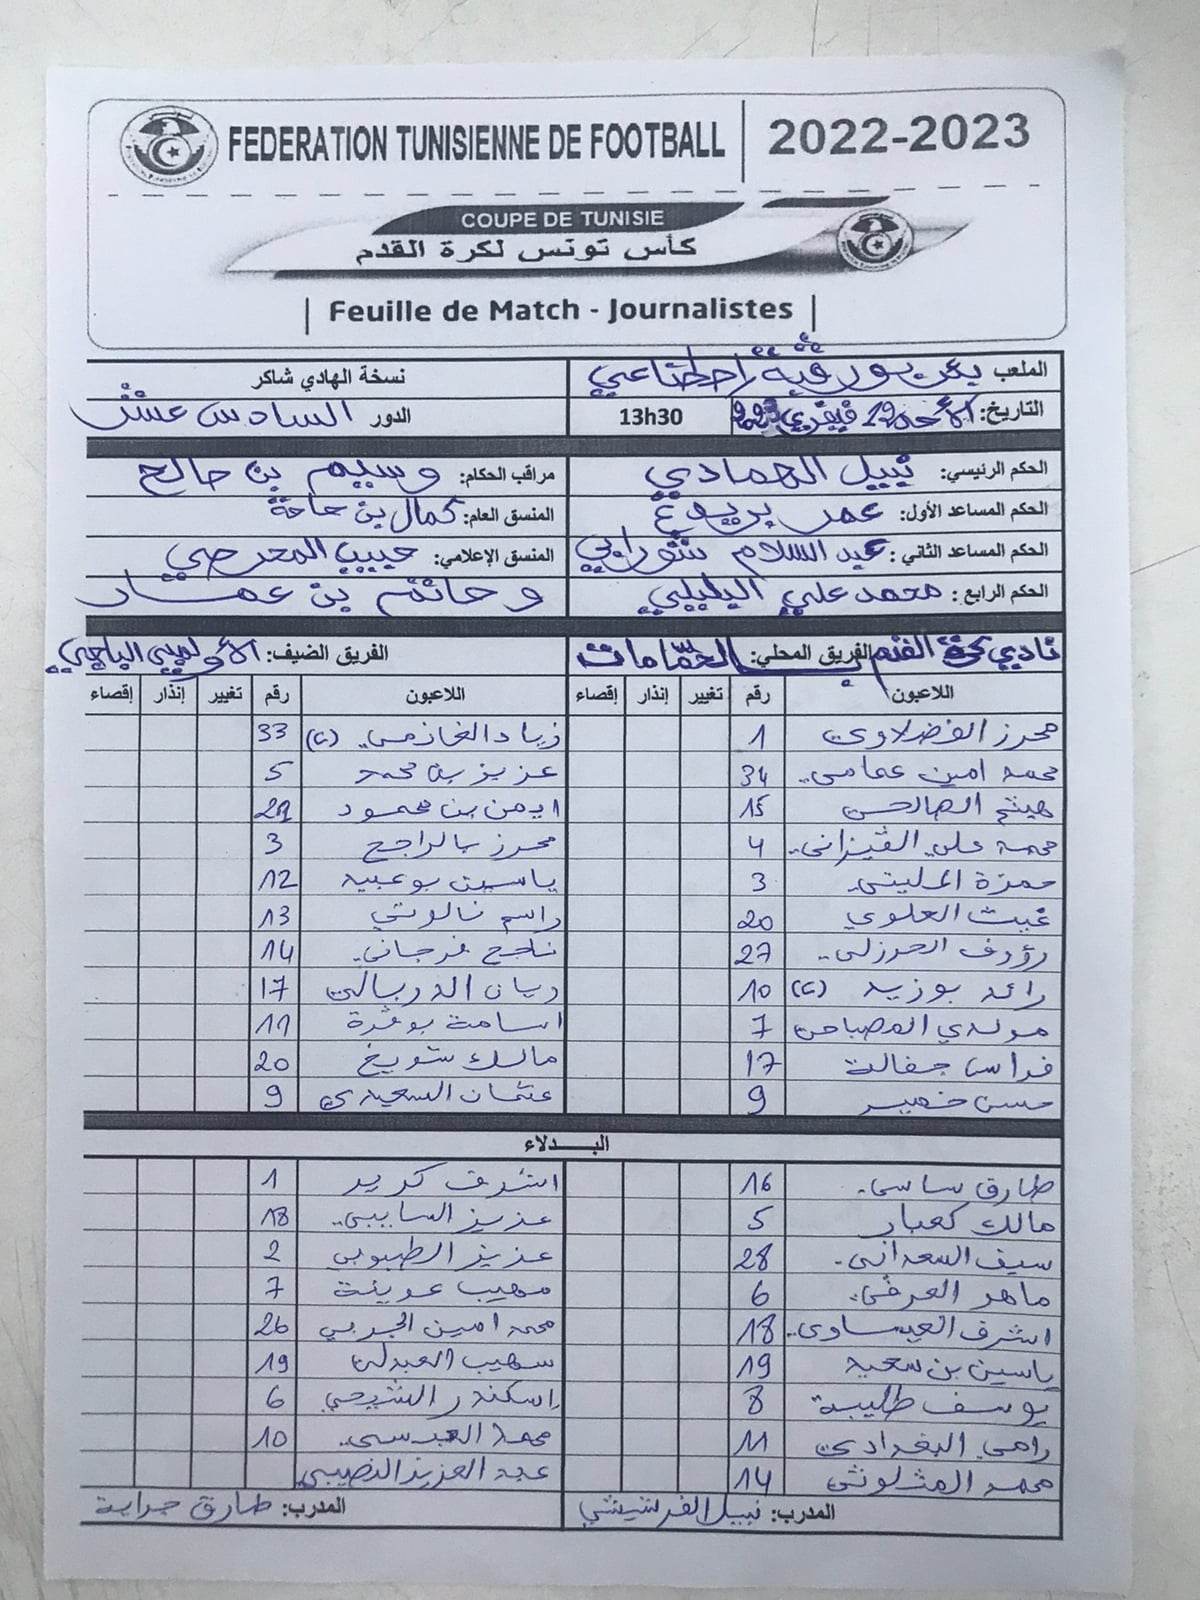 FEDERATION TUNISIENNE DE FOOTBALL 2022-2023
COUPE DE TUNISIE
كأس تونس لكرة القدم
Feuille de Match - Journalistes
الملعب نسخة الهادي شاكر
التاريخ: الأحد 12 فيفري 2023 13h30 الدور السادس عشر
الحكم الرئيسي: نبيل الهمادي مراقب الحكام: وسيم بن صالح
الحكم المساعد الأول: عمر المنسق العام: كمال بن
الحكم المساعد الثاني: عبد السلام المنسق الإعلامي: حبيب المعرصي
الحكم الرابع: محمد علي و حاتم بن عمار
الفريق المحلي: نادي كرة القدم بالحمامات الفريق الضيف: الأولمبي الباجي
اللاعبون رقم تغيير إنذار إقصاء اللاعبون رقم تغيير إنذار إقصاء
محرز الفضلاوي 1 زياد الغانمي (c) 33
محمد امين عمامي 34 عزيز بن محمد 5
هيثم الصالحي 15 ايمن بن محمود 29
محمد علي القيزاني 4 محرز بالراجح 3
حمزة المليتي 3 ياسين بوعبيد 12
غيث العلوي 20 راسم نالوتي 13
رؤوف الحرزلي 27 ناجح فرجاني 14
رائد بوزيد (c) 10 ريان الدربالي 17
مولدي المصباحي 7 اسامة بوقرة 11
فراس جفالة 17 مالك شويخ 20
حسن خمير 9 عثمان السعيدي 9
البدلاء
طارق ساسي 16 اشرف كرير 1
مالك كعبار 5 عزيز السايبي 18
سيف السعداني 28 عزيز الطبوبي 2
ماهر العرفي 6 مهيب عوينة 7
اشرف العيساوي 18 محمد امين الجربي 26
ياسين بن سعيد 19 سهيب العبدلي 19
يوسف طليبة 8 اسكندر الشيحي 6
رامي البغدادي 11 محمد 10
محمد المثلوثي 14 عبد العزيز النصيبي
المدرب: نبيل الفرشيشي المدرب: طارق جراية